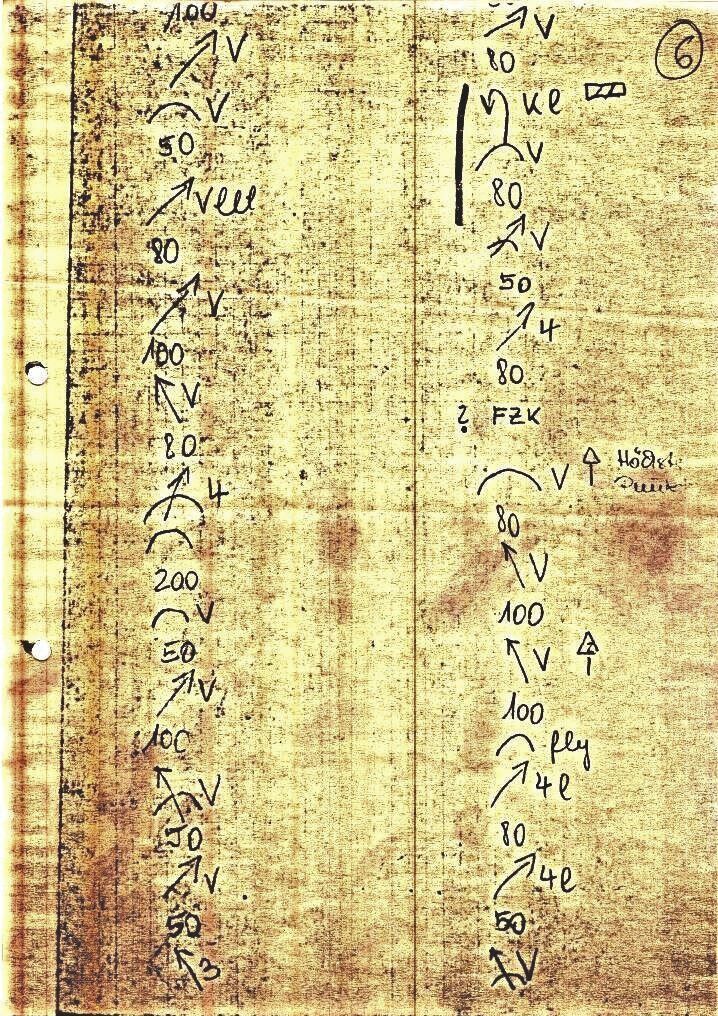 100
V
V
50
Vlll
80
V
100
V
80
4
200
V
50
V
100
V
50
V
50
3
6
V
80
Kl
V
80
V
50
4
80
? FZK
V Höchst.
80
V
100
V
100
fly
4l
80
4l
50
V